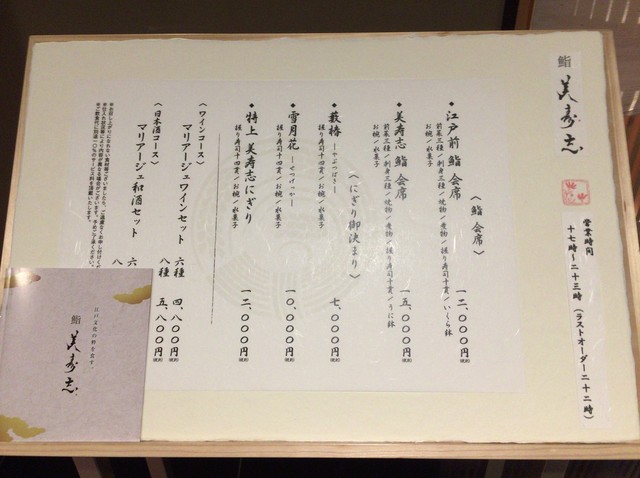 鮨 美寿志
営業時間
十七時〜二十三時（ラストオーダー二十二時）
〈鮨 会席〉
◆江戸前 鮨 会席 一二、〇〇〇円（税別）
前菜三種／刺身三種／焼物／煮物／握り寿司十貫／いくら鉢
お椀／水菓子
◆美寿志 鮨 会席 一五、〇〇〇円（税別）
前菜三種／刺身三種／焼物／煮物／握り寿司十貫／うに鉢
お椀／水菓子
〈にぎり御決まり〉
◆藪椿 ―やぶつばき― 七、〇〇〇円（税別）
握り寿司十貫／お椀／水菓子
◆雪月花 ―せつげっか― 一〇、〇〇〇円（税別）
握り寿司十四貫／お椀／水菓子
◆特上 美寿志にぎり 一二、〇〇〇円（税別）
握り寿司十四貫／お椀／水菓子
〈ワインコース〉
マリアージュワインセット 六種 四、八〇〇円（税別）
八種 五、八〇〇円（税別）
〈日本酒コース〉
マリアージュ和酒セット 六
八
江戸文化の粋を食す
鮨 美寿志